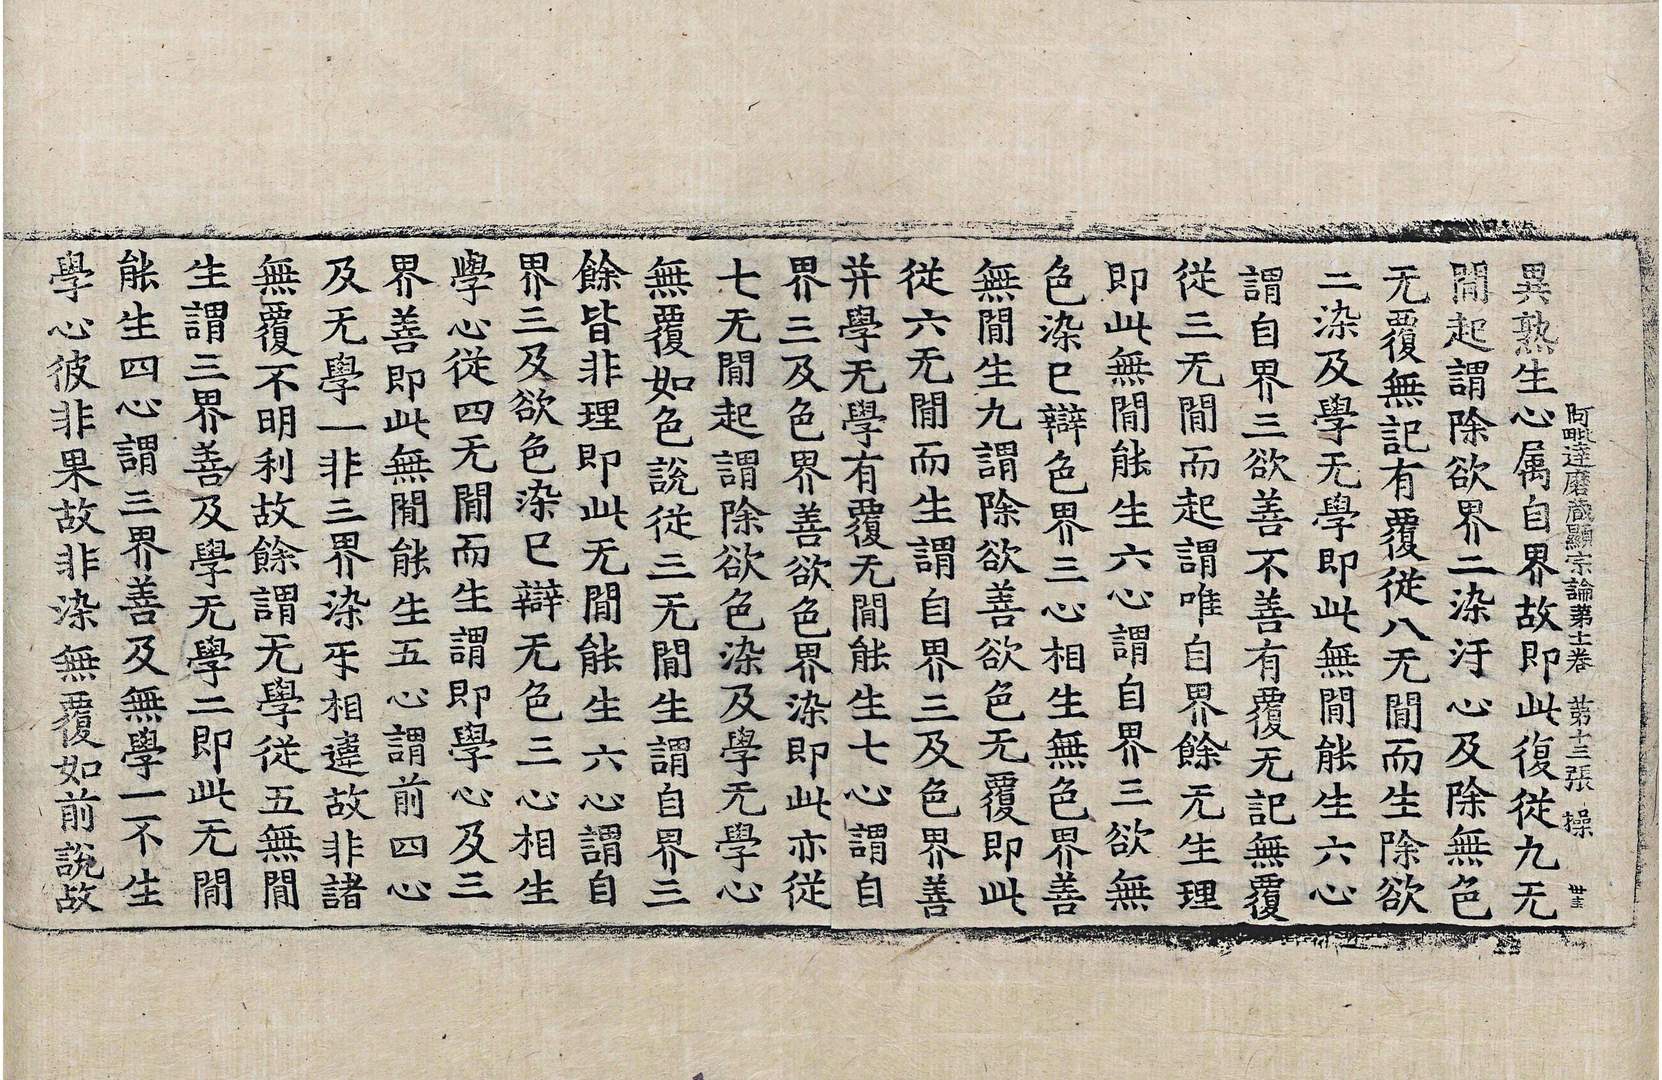 阿毗達磨藏顯宗論第十一卷　第十三張　操
異熟生心属自界故即此復從九无
閒起謂除欲界二染汙心及除無色
无覆無記有覆從八无閒而生除欲
二染及學无學即此無閒能生六心
謂自界三欲善不善有覆无記無覆
從三无閒而起謂唯自界餘无生理
即此無閒能生六心謂自界三欲無
色染巳辯色界三心相生無色界善
無閒生九謂除欲善欲色无覆即此
從六无閒而生謂自界三及色界善
并學无學有覆无閒能生七心謂自
界三及色界善欲色界染即此亦從
七无閒起謂除欲色染及學无學心
無覆如色說從三无閒生謂自界三
餘皆非理即此无閒能生六心謂自
界三及欲色染巳辯无色三心相生
學心從四无閒而生謂即學心及三
界善即此無閒能生五心謂前四心
及无學一非三界染㸦相違故非諸
無覆不明利故餘謂无學從五無閒
生謂三界善及學无學二即此无閒
能生四心謂三界善及無學一不生
學心彼非果故非染無覆如前說故